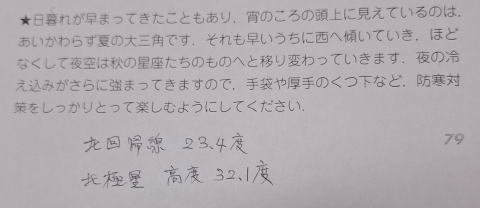 ★日暮れが早まってきたこともあり，宵のころの頭上に見えているのは，
あいかわらず夏の大三角です．それも早いうちに西へ傾いていき，ほど
なくして夜空は秋の星座たちのものへと移り変わっていきます．夜の冷
え込みがさらに強まってきますので，手袋や厚手のくつ下など，防寒対
策をしっかりとって楽しむようにしてください．
北回帰線 23.4度
79
北極星 高度 32.1度